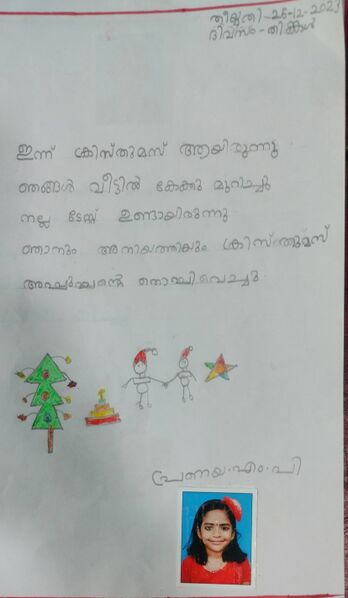 തീയ്യതി -25-12-2023
ദിവസം - തിങ്കൾ
ഇന്ന് ക്രിസ്തുമസ് ആയിരുന്നു
ഞങ്ങൾ വീട്ടിൽ കേക്കു മുറിച്ചു
നല്ല ടേസ്റ്റ് ഉണ്ടായിരുന്നു
ഞാനും അനിയത്തിയും ക്രിസ്തുമസ്
അപ്പൂപ്പന്റെ തൊപ്പിവെച്ചു
പ്രണയ.എം.പി